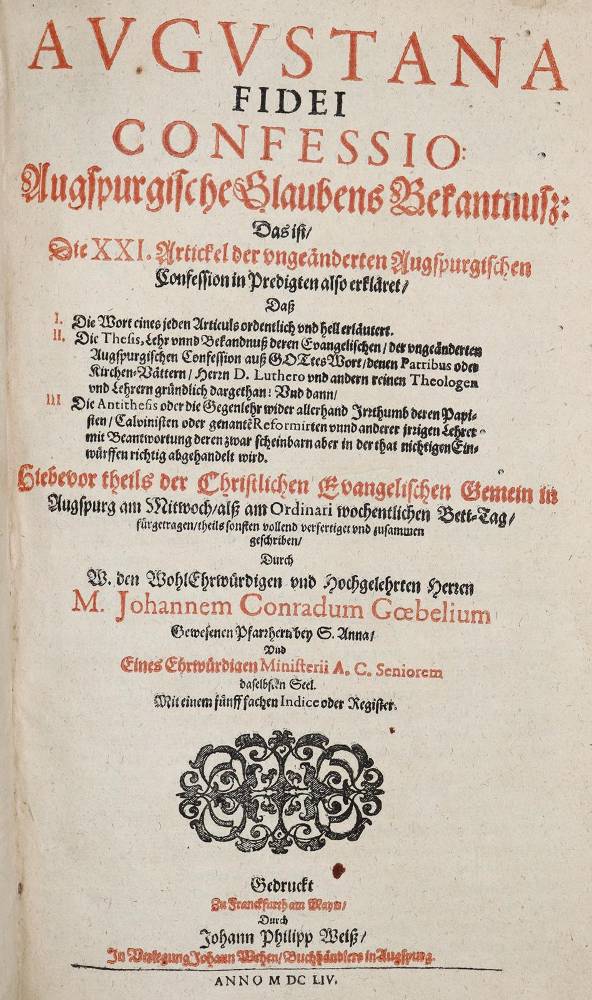 AVGVSTANA
FIDEI
CONFESSIO:
Augspurgische Glaubens Bekantnusz:
Das ist/
Die XXI. Artickel der vngeänderten Augspurgischen
Confession in Predigten also erkläret/
Daß
I. Die Wort eines jeden Articuls ordentlich vnd hell erläutert.
II. Die Thesis, Lehr vnnd Bekandnuß deren Evangelischen/ der vngeänderten
Augspurgischen Confession auß GOTtes Wort/ denen Patribus oder
Kirchen-Vättern/ Herrn D. Luthero vnd andern reinen Theologen
vnd Lehrern gründlich dargethan: Vnd dann/
III Die Antithesis oder die Gegenlehr wider allerhand Irrthumb deren Papi-
sten/ Calvinisten oder genantē Reformirten vnnd anderer irrigen Lehrer
mit Beantwortung deren zwar scheinbarn aber in der that nichtigen Ein-
würffen richtig abgehandelt wird.
Hiebevor theils der Christlichen Evangelischen Gemein in
Augspurg am Mitwoch/ alß am Ordinari wochentlichen Bett-Tag/
fürgetragen/ theils sonsten vollend verfertiget vnd zusammen
geschriben/
Durch
W. den WohlEhrwürdigen vnd Hochgelehrten Herren
M. Johannem Conradum Gœbelium
Gewesenen Pfarrhern bey S. Anna/
Vnd
Eines Ehrwürdigen Ministerii A. C. Seniorem
daselbsten Seel.
Mit einem fünff fachen Indice oder Register.
Gedruckt
Zu Franckfurth am Mayn/
Durch
Johann Philipp Weiß/
In Verlegung Johann Wehen/ Buchhändlers in Augspurg.
ANNO M DC LIV.